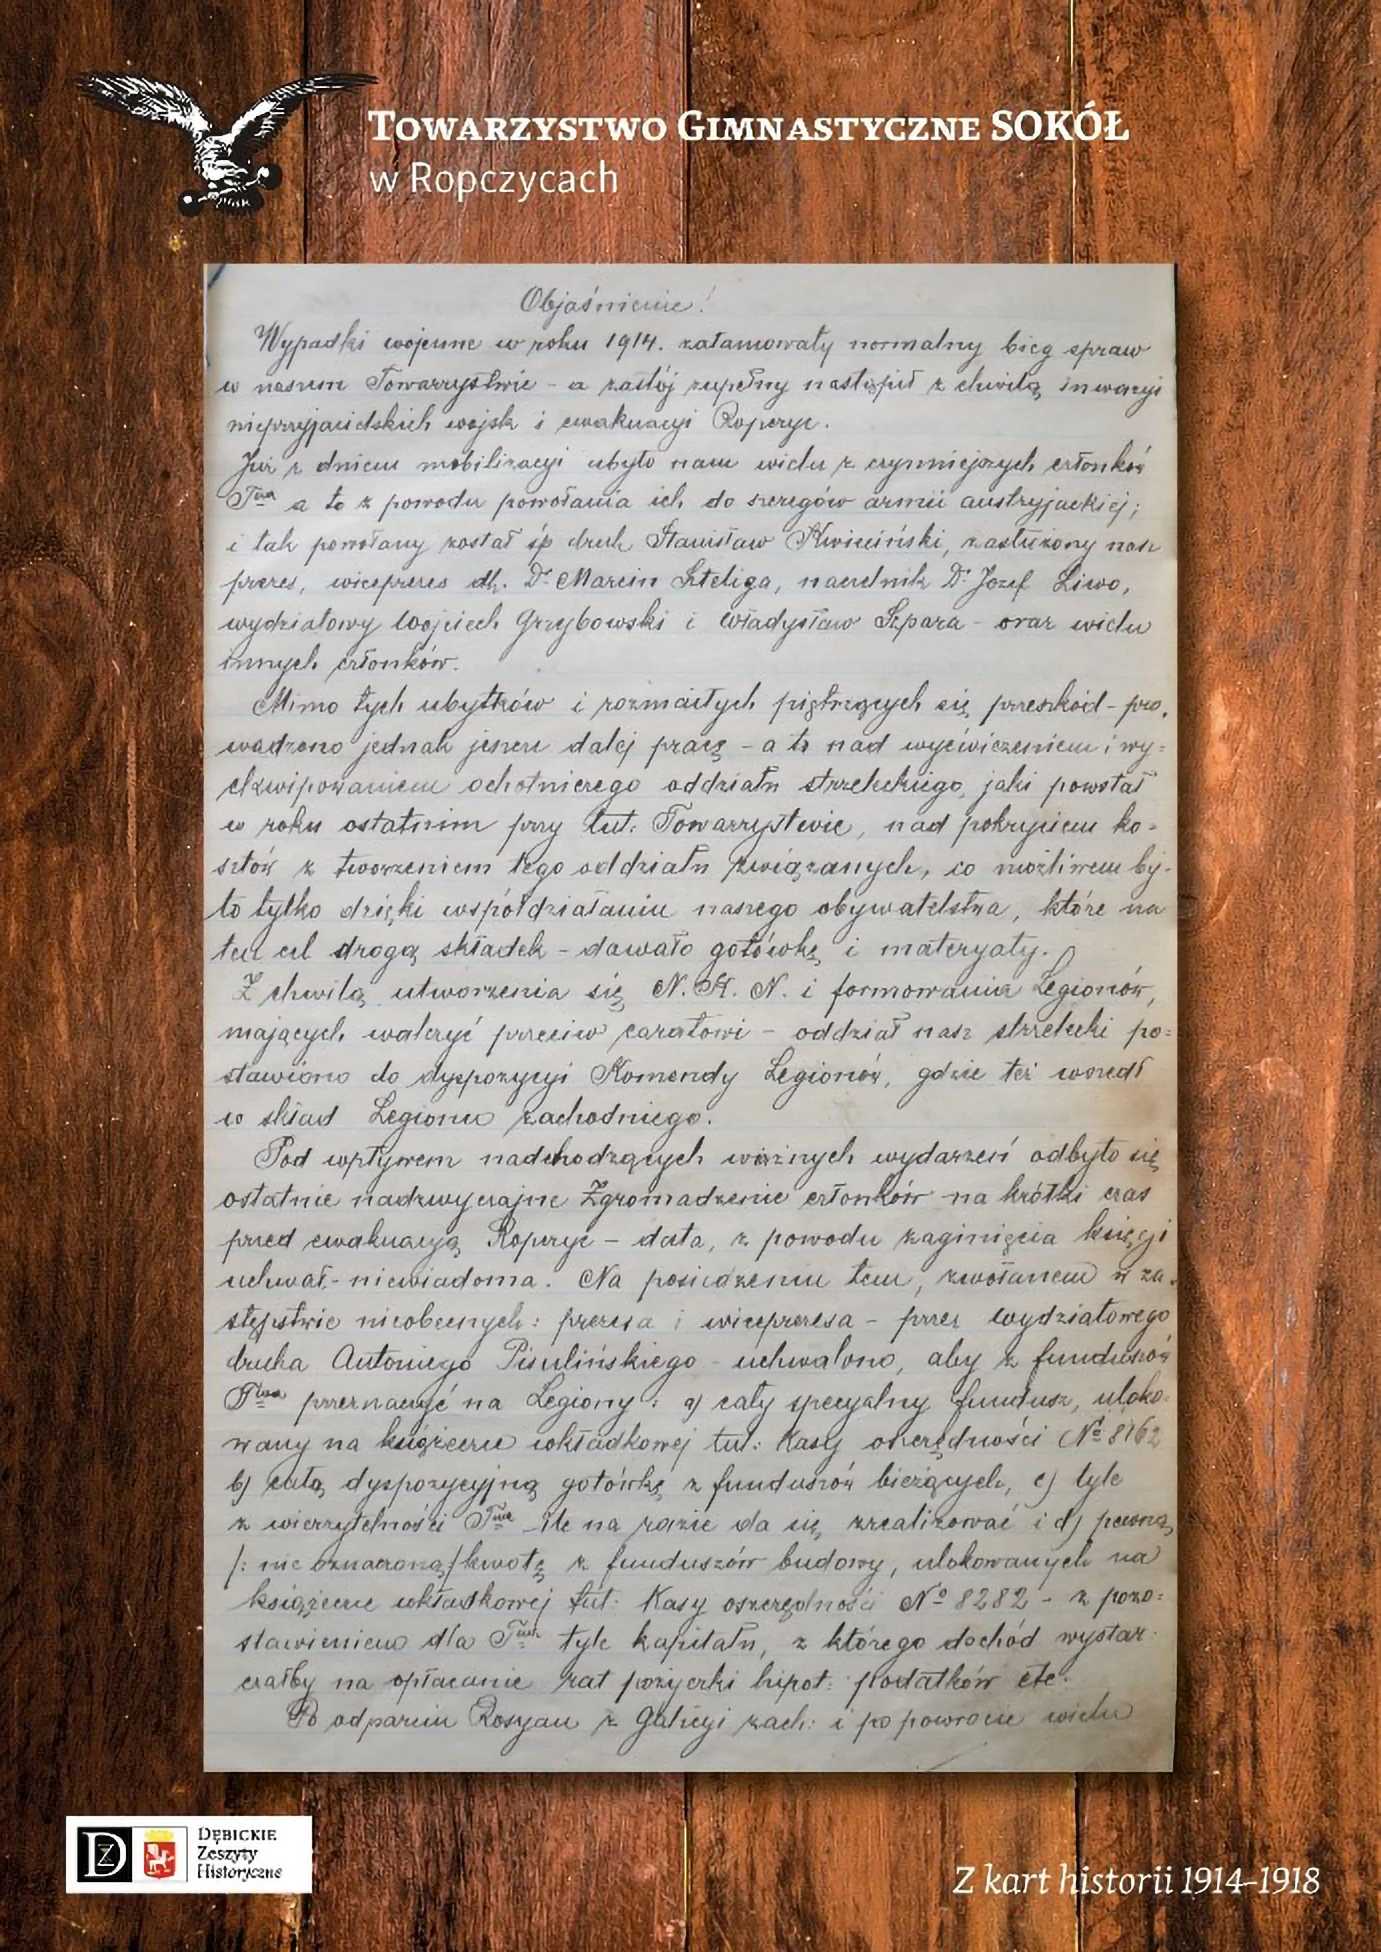 TOWARZYSTWO GIMNASTYCZNE SOKÓŁ
w Ropczycach
Objaśnienie!
Wypadki wojenne w roku 1914. zatamowały normalny bieg spraw
w naszem Towarzystwie - a zastój zupełny nastąpił z chwilą inwazyi
nieprzyjacielskich wojsk i ewakuacyi Ropczyc.
Już z dniem mobilizacyi ubyło nam wielu z czynniejszych członków
Twa a to z powodu powołania ich do szeregów armii austryjackiej;
i tak powołany został śp druh Stanisław Kwieciński, zasłużony nasz
prezes, wiceprezes dh. Dr Marcin Szteliga, naczelnik Dr Jozef Liwo,
wydziałowy Wojciech Grzybowski i Władysław Szpara - oraz wielu
innych członków.
Mimo tych ubytków i rozmaitych piętrzących się przeszkód - pro-
wadzono jednak jeszcze dalej pracę - a to nad wyćwiczeniem i wy-
ekwipowaniem ochotniczego oddziału strzeleckiego, jaki powstał
w roku ostatnim przy tut: Towarzystwie, nad pokryciem ko-
sztów z tworzeniem tego oddziału związanych, co możliwem by-
ło tylko dzięki współdziałaniu naszego obywatelstwa, które na
ten cel drogą składek - dawało gotówkę i materyały.
Z chwilą utworzenia się N. K. N. i formowania Legionów,
mających walczyć przeciw caratowi - oddział nasz strzelecki po-
stawiono do dyspozycyi Komendy Legionów, gdzie też wszedł
w skład Legionu zachodniego.
Pod wpływem nadchodzących ważnych wydarzeń odbyło się
ostatnie nadzwyczajne Zgromadzenie członków na krótki czas
przed ewakuacyą Ropczyc - data, z powodu zaginięcia księgi
uchwał - niewiadoma. Na posiedzeniu tem, zwołanem w za-
stępstwie nieobecnych: prezesa i wiceprezesa - przez wydziałowego
druha Antoniego Pisulińskiego - uchwalono, aby z funduszów
Twa przeznaczyć na Legiony: a) cały specyalny fundusz, uloko-
wany na książeczce wkładkowej tut: Kasy oszczędności № 8162
b) całą dyspozycyjną gotówkę z funduszów bieżących, c) tyle
z wierzytelności Twa ile na razie da się zrealizować i d) pewną
/: nie oznaczoną/ kwotę z funduszów budowy, ulokowanych na
książeczce wkładkowej tut: Kasy oszczędności № 8282 - z pozo-
stawieniem dla Twa tyle kapitału, z którego dochód wystar-
czałby na opłacanie rat pożyczki hipot: podatków etc.
Po odparciu Rosyan z Galicyi zach: i po powrocie wielu
DZ
DĘBICKIE
Zeszyty
Historyczne
Z kart historii 1914-1918